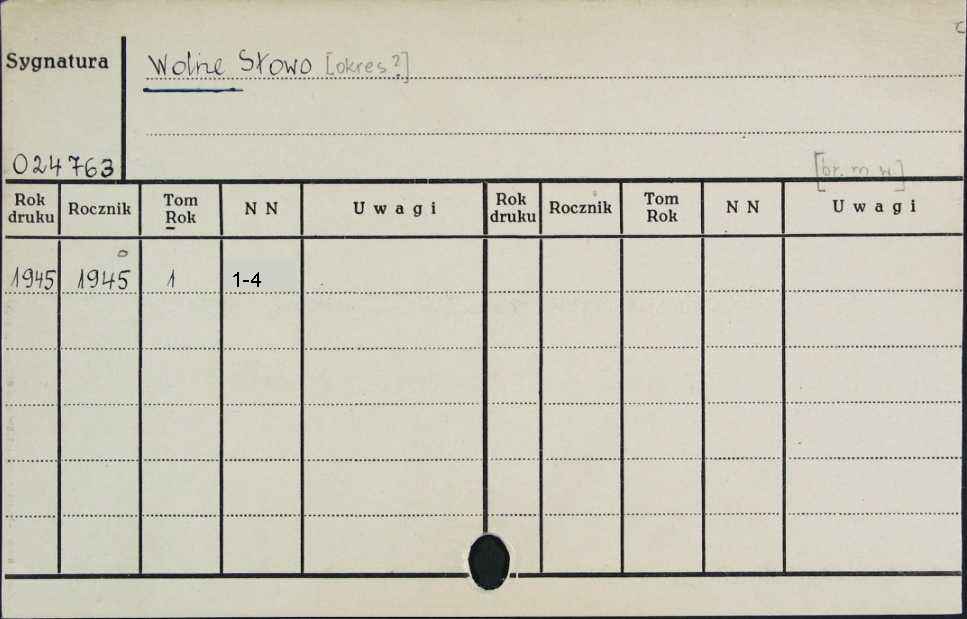 Sygnatura
Wolne Słowo [okres?]
024763
[br. m. w.]
Rok druku Rocznik Tom Rok N N Uwagi Rok druku Rocznik Tom Rok N N Uwagi
1945 1945 1 1-4